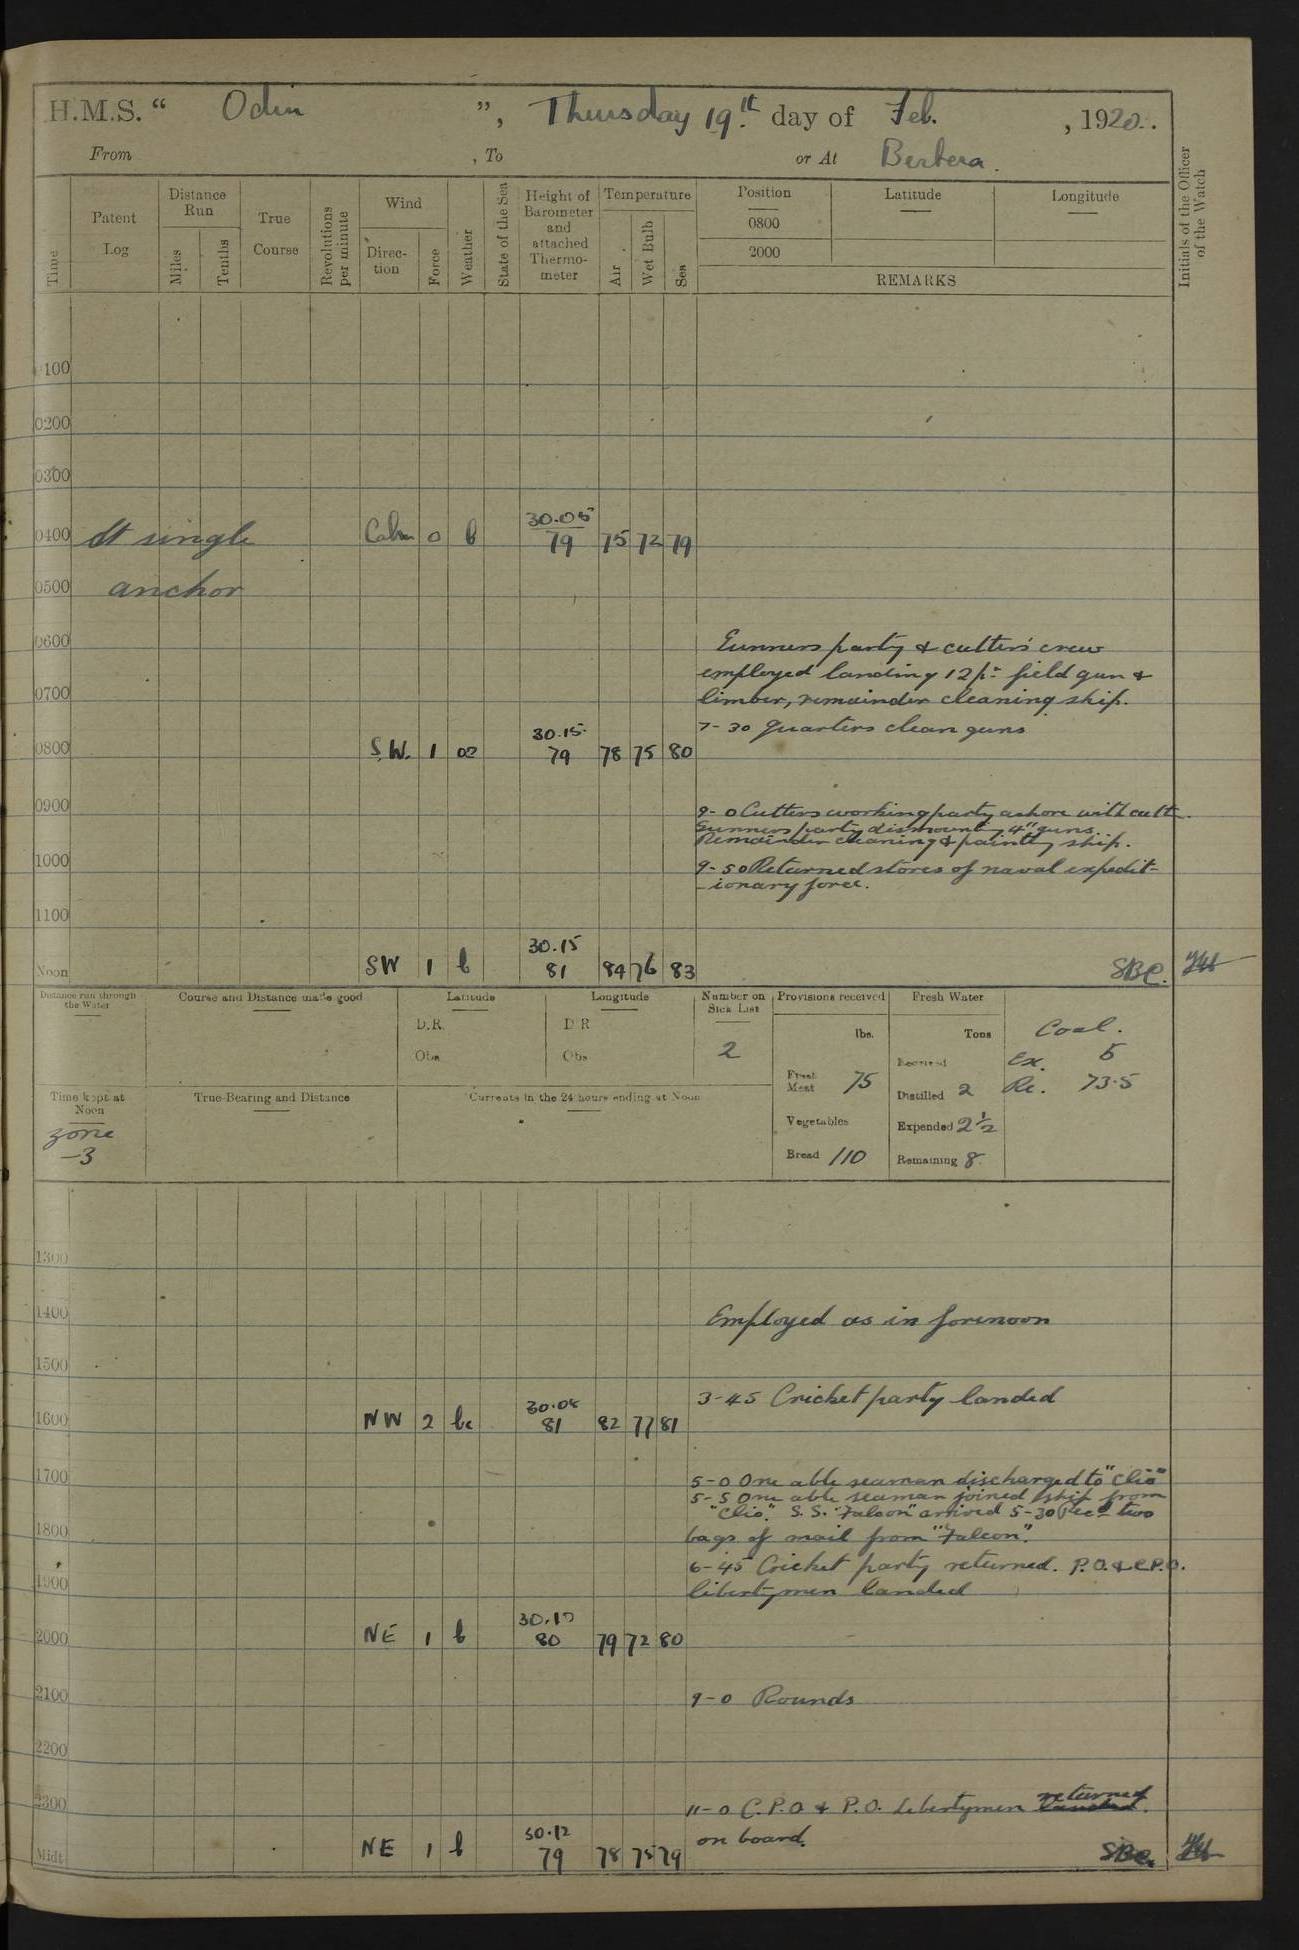 H.M.S. “ Odin ”, Thursday 19th. day of Feb. , 1920.
From , To or At Berbera.
Time Patent Log Distance Run Miles Tenths True Course Revolutions per minute Wind Direction Force Weather State of the Sea Height of Barometer and attached Thermometer Temperature Air Wet Bulb Sea Position Latitude Longitude Initials of the Officer of the Watch
0800
2000
REMARKS
0100
0200
0300
30.05
0400 At single Calm 0 b 79 75 72 79
0500 anchor
0600 Gunners party & cutters' crew
employed landing 12 pr field gun &
0700 limber, remainder cleaning ship.
7-30 Quarters clean guns
30.15
0800 S.W. 1 79 78 75 80
0900 9-0 Cutters working party ashore with
Gunners party dismounting 4" guns.
Remainder cleaning & painting ship.
1000 9-50 Returned stores of naval expedit-
-ionary force.
1100
30.15
Noon SW 1 b 81 84 76 83 SBC.
Distance run through the Water Course and Distance made good Latitude Longitude Number on Sick List Provisions received Fresh Water Coal.
D.R. D R lbs. Tons
Obs Obs 2 Received Ex. 5
Fresh Meat 75 Distilled 2 Re. 73.5
Time kept at Noon True Bearing and Distance Currents in the 24 hours ending at Noon
zone Vegetables Expended 2½
-3 Bread 110 Remaining 8
1300
1400 Employed as in forenoon
1500
3-45 Cricket party landed
30.08
1600 NW 2 bc 81 82 77 81
1700 5-0 One able seaman discharged to "Clio"
5-5 One able seaman joined ship from
"Clio". S.S. "Falcon" arrived 5-30 Recd two
1800 bags of mail from "Falcon".
6-45 Cricket party returned. P.O. & C.P.O.
1900 libertymen landed
30.10
2000 NE 1 b 80 79 72 80
2100 9-0 Rounds
2200
2300 11-0 C.P.O & P.O. Libertymen returned landed.
30.12 on board.
Midt NE 1 b 79 78 75 79 SBC.